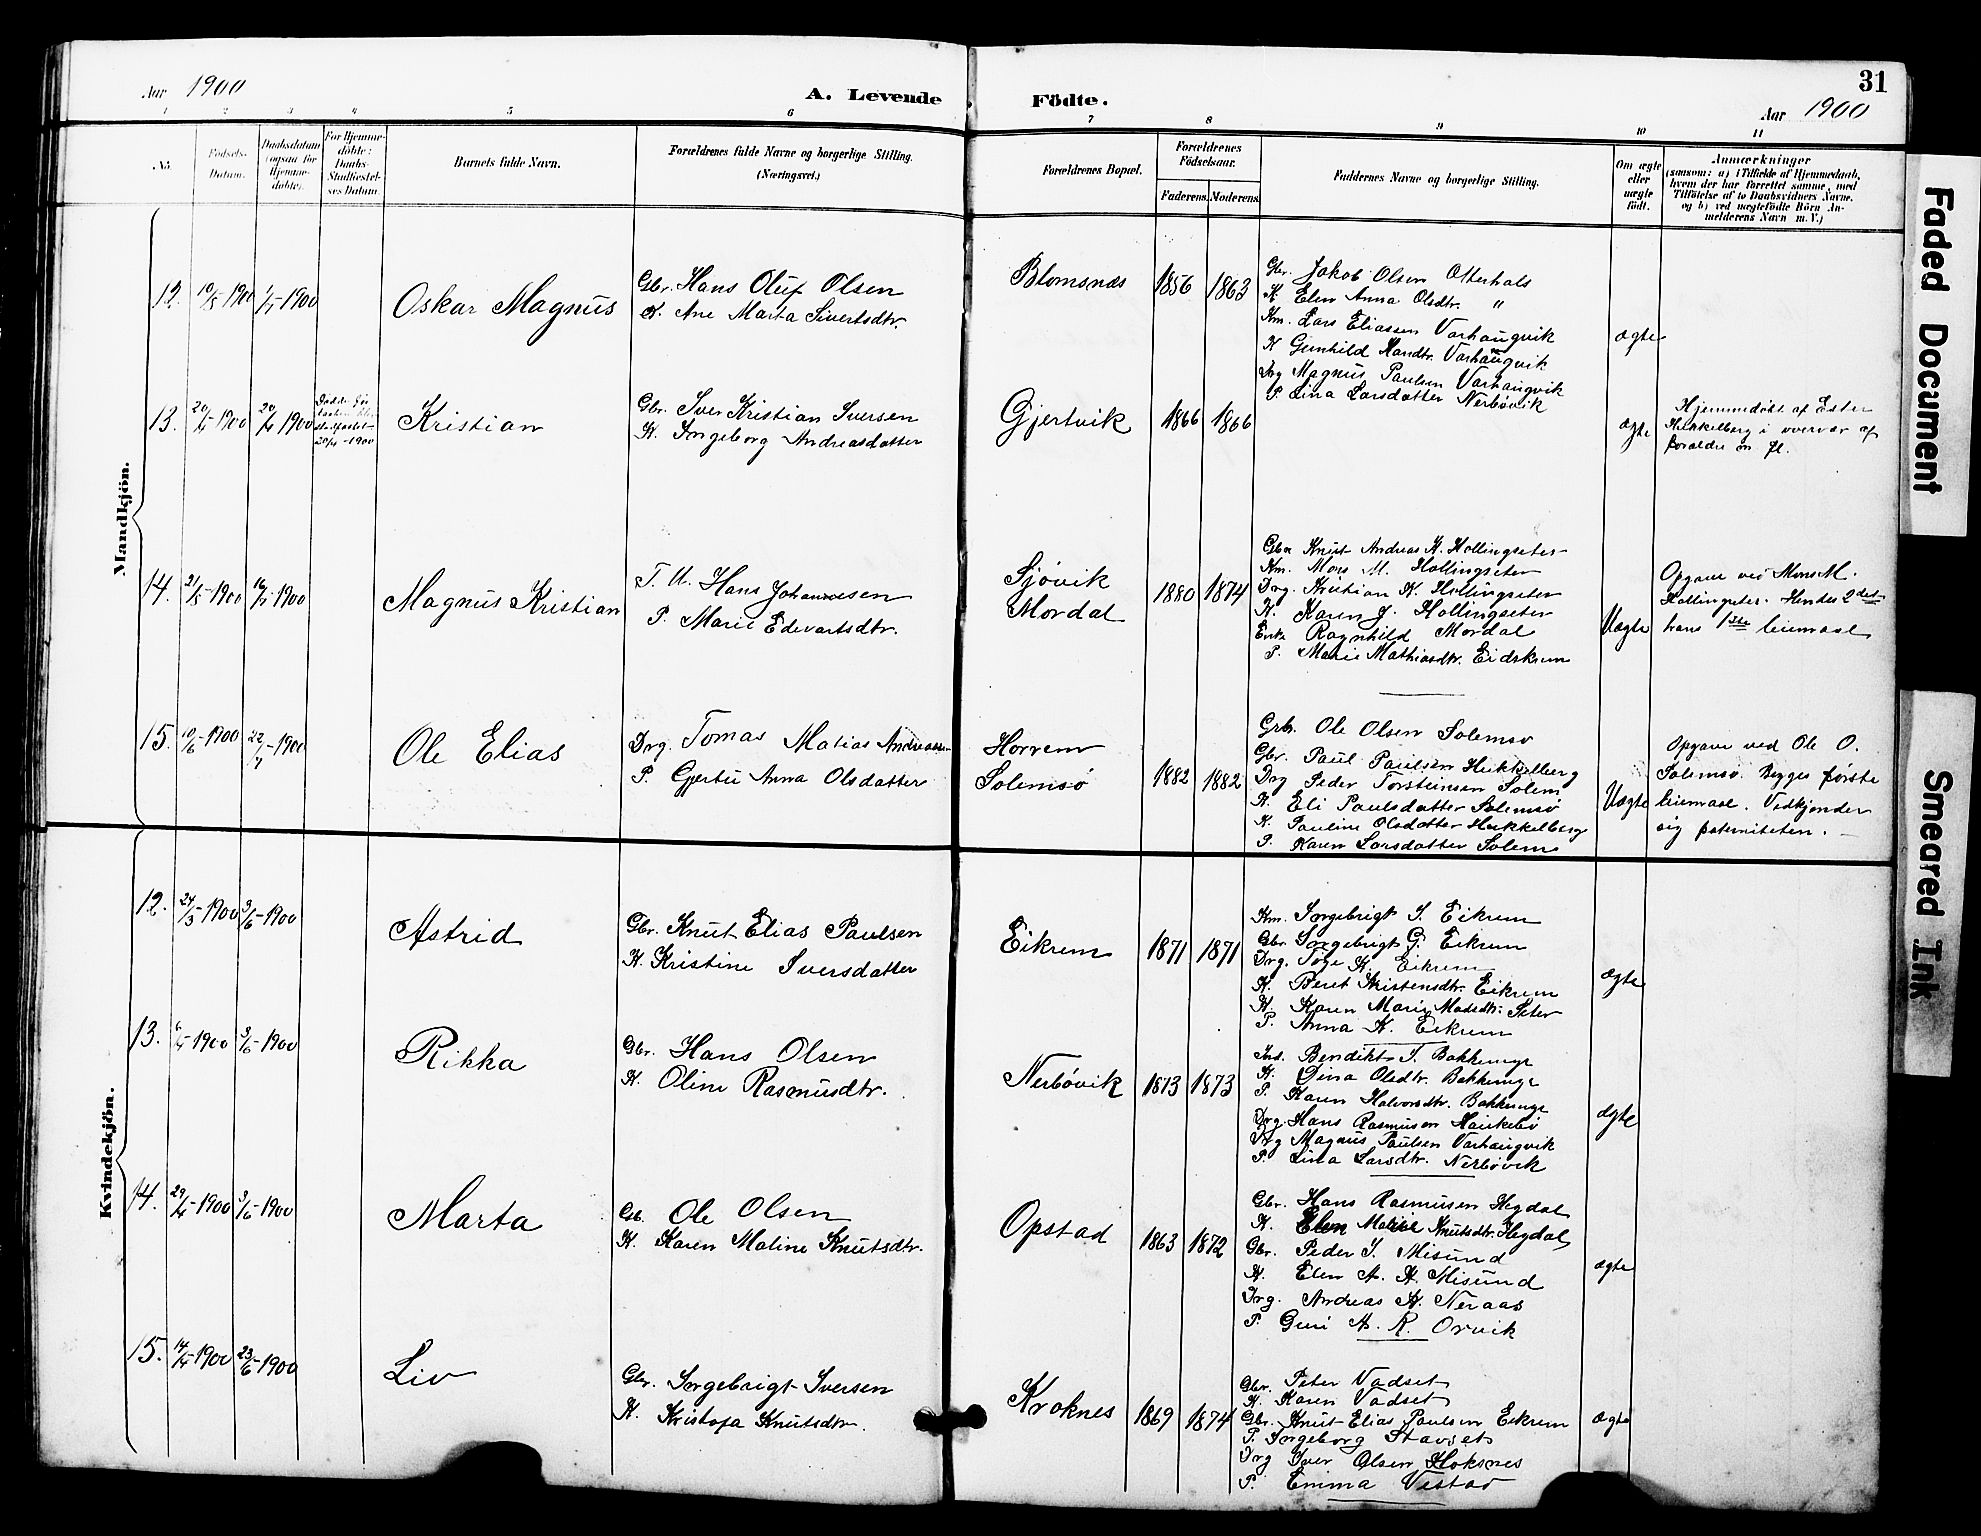 31
Aar 1900
A. Levende Födte.
Aar 1900
1 2 3 4 5 6 7 8 9 10 11
No.
Födsels-
Datum.
Daabsdatum
(ogsaa for
Hjemme-
döbte).
For Hjemme-
döbte:
Daabs-
Stadfæstel-
ses Datum.
Barnets fulde Navn.
Forældrenes fulde Navne og borgerlige Stilling.
(Næringsvei.)
Forældrenes Bopæl.
Forældrenes
Födselsaar.
Faderens. Moderens.
Faddernes Navne og borgerlige Stilling.
Om ægte
eller
uægte
födt.
Anmærkninger
(saasom: a) i Tilfælde af Hjemmedaab,
hvem der har forrettet samme, med
Tilföielse af to Daabsvidners Navne,
og b) ved uægtefödte Börn An-
melderens Navn m. V.)
Mandkjön.
12. 10/5-1900 1/7-1900
Oskar Magnus
Gbr. Hans Oluf Olsen
K. Ane Marta Sivertsdtr.
Blomsnæs
1856 1863
Gbr. Jakob Olsen Otterhals
K. Elen Anna Olsdtr. "
Km. Lars Eliassen Varhaugvik
K Gunhild Randtr. Varhaugvik
Drg Magnus Paulsen Varhaugvik
P. Lina Larsdatter Nerbövik
ægte
13. 20/4-1900 20/4 1900
20/4-1900
Kristian
Gbr. Iver Kristian Iversen
K. Ingeborg Andreasdatter
Gjertvik
1866 1866
ægte
Hjemmedöbt af Ester
Hukkelberg i overvær af
forældre m fl.
14. 21/5-1900 16/7-1900
Magnus Kristian
T. U. Hans Johannesen
P. Marie Edvartsdtr.
Sjövik
Mordal
1880 1874
Gbr Knut Andreas K. Hollingseter
Km. Mons M. Hollingseter
Drg. Kristian K. Hollingseter
K. Karen J. Hollingseter
Enke Ragnhild Mordal
P. Marie Mathiasdtr. Eidskrem
Uægte
Opgave ved Mons M.
Hollingseter. Hendes 2det
hans 1ste leiermaal
15. 10/6-1900 22/7-1900
Ole Elias
Drg. Tomas Matias Andreassen
P. Gjertu Anna Olsdatter
Horrem
Solemsö
1882 1882
Gbr. Ole Olsen Solemsö
Gbr. Paul Paulsen Hukkelberg
Drg Peder Torsteinsen Solem
K. Eli Paulsdatter Solemsö
K. Pauline Olsdatter Hukkelberg
P. Karen Larsdatter Solem
Uægte
Opgave ved Ole O.
Solemsö. Begges förste
leiermaal. Vedkjender
sig paterniteten.
Kvindekjön.
12. 24/3-1900 3/6-1900
Astrid
Gbr. Knut Elias Paulsen
K. Kristine Iversdatter
Eikrem
1871 1871
Km. Ingebrigt I. Eikrem
Gbr. Ingebrigt G. Eikrem
Drg. Töge K. Eikrem
K. Beret Kristensdtr. Eikrem
K. Karen Marie Madsdtr. Seter
P. Anna K. Eikrem
ægte
13. 6/4-1900 3/6-1900
Rikka
Gbr. Hans Olsen
K. Oline Rasmusdtr.
Nerbövik
1873 1873
Ins. Bendikt T. Bakkemyr
K. Dina Olsdtr. Bakkemyr
P. Karen Halvorsdtr. Bakkemyr
Drg. Hans Rasmusen Haukebö
Drg Magnus Paulsen Varhaugvik
P. Lina Larsdtr. Nerbövik
ægte
14. 29/4-1900 3/6-1900
Marta
Gb. Ole Olsen
K. Karen Maline Knutsdtr.
Opstad
1863 1872
Gbr. Hans Rasmusen Hegdal
K. Elen Malene Knutsdtr. Hegdal
Gbr. Peder I. Misund
K. Elen A. H. Misund
Drg. Andreas H. Neraas
P. Guri A. R. Orvik
ægte
15. 14/4-1900 23/6-1900
Liv
Gbr. Ingebrigt Iversen
K. Kristofa Knutsdtr.
Kroknes
1869 1874
Gbr. Peter Vadset
K. Karen Vadset
Gbr. Knut Elias Paulsen Eikrem
P. Ingeborg Stavset
Drg Iver Olsen Hoksnes
P. Emma Vestad
ægte
Faded Document
Smeared Ink